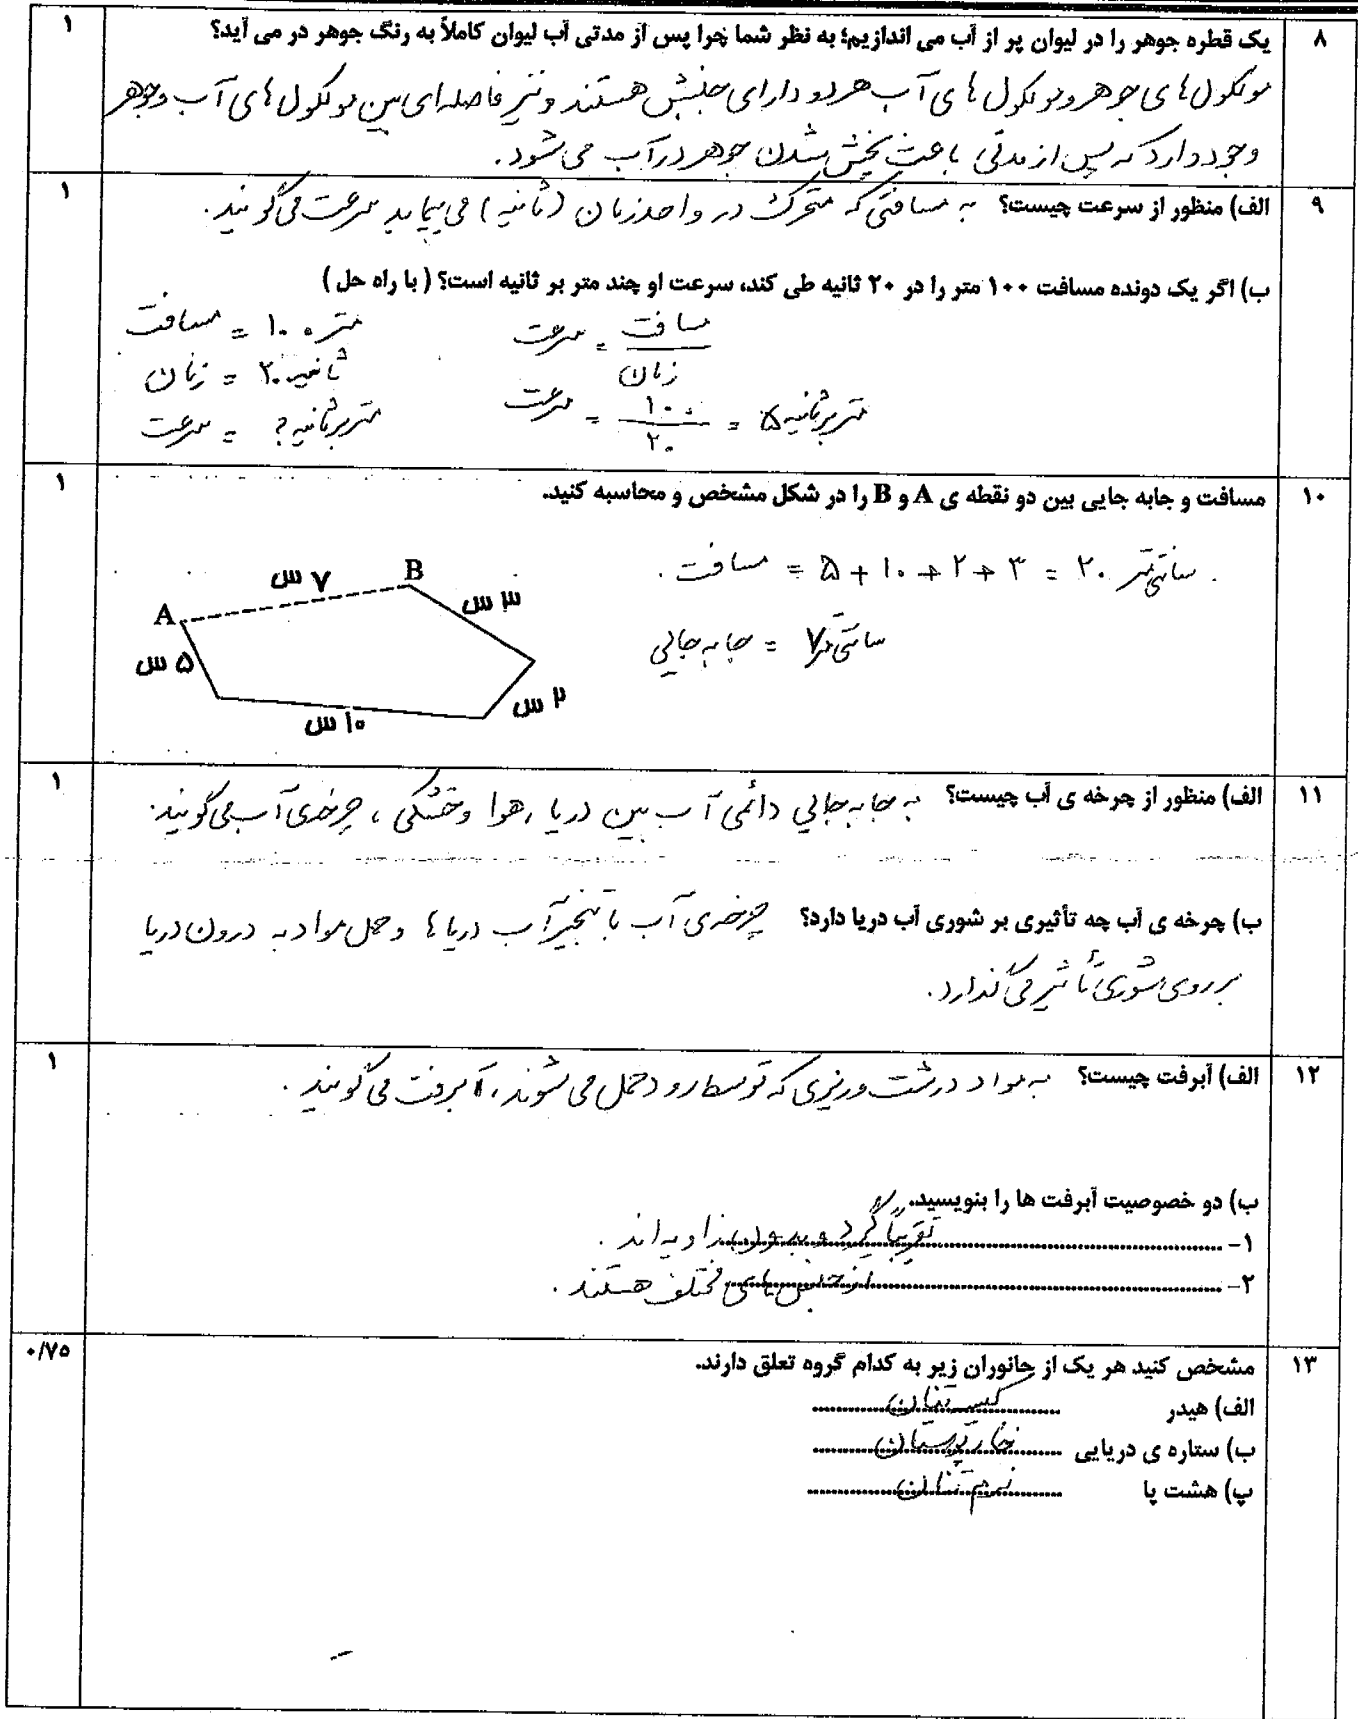 ۸ یک قطره جوهر را در لیوان پر از آب می اندازیم؛ به نظر شما چرا پس از مدتی آب لیوان کاملاً به رنگ جوهر در می آید؟ ۱
مولکول های جوهر و مولکول های آب هر دو دارای جنبش هستند و نیز فاصله ای بین مولکول های آب و جوهر
وجود دارد که پس از مدتی باعث پخش شدن جوهر در آب می شود.
۹ الف) منظور از سرعت چیست؟ به مسافتی که متحرک در واحد زمان (ثانیه) می پیماید سرعت می گویند. ۱
ب) اگر یک دونده مسافت ۱۰۰ متر را در ۲۰ ثانیه طی کند، سرعت او چند متر بر ثانیه است؟ ( با راه حل )
سرعت = مسافت / زمان
مسافت = ۱۰۰ متر
زمان = ۲۰ ثانیه
سرعت = ۱۰۰ / ۲۰ = ۵ متر بر ثانیه
سرعت = ? متر بر ثانیه
۱۰ مسافت و جابه جایی بین دو نقطه ی A و B را در شکل مشخص و محاسبه کنید. ۱
مسافت = ۵ + ۱۰ + ۲ + ۳ = ۲۰ سانتی متر
جابه جایی = ۷ سانتی متر
B
۷ س
۳ س
A
۵ س
۲ س
۱۰ س
۱۱ الف) منظور از چرخه ی آب چیست؟ به جابه جایی دائمی آب بین دریا، هوا و خشکی، چرخه ی آب می گویند. ۱
ب) چرخه ی آب چه تأثیری بر شوری آب دریا دارد؟ چرخه ی آب با تبخیر آب دریا ها و حمل مواد به درون دریا
بر روی شوری تأثیر می گذارد.
۱۲ الف) آبرفت چیست؟ به مواد درشت و ریزی که توسط رود حمل می شوند، آبرفت می گویند. ۱
ب) دو خصوصیت آبرفت ها را بنویسید.
۱- تقریباً گرد و بدون زاویه اند.
۲- از جنس های مختلف هستند.
۱۳ مشخص کنید هر یک از جانوران زیر به کدام گروه تعلق دارند. ۰/۷۵
الف) هیدر کیسه تنان
ب) ستاره ی دریایی خارپوستان
پ) هشت پا نرم تنان